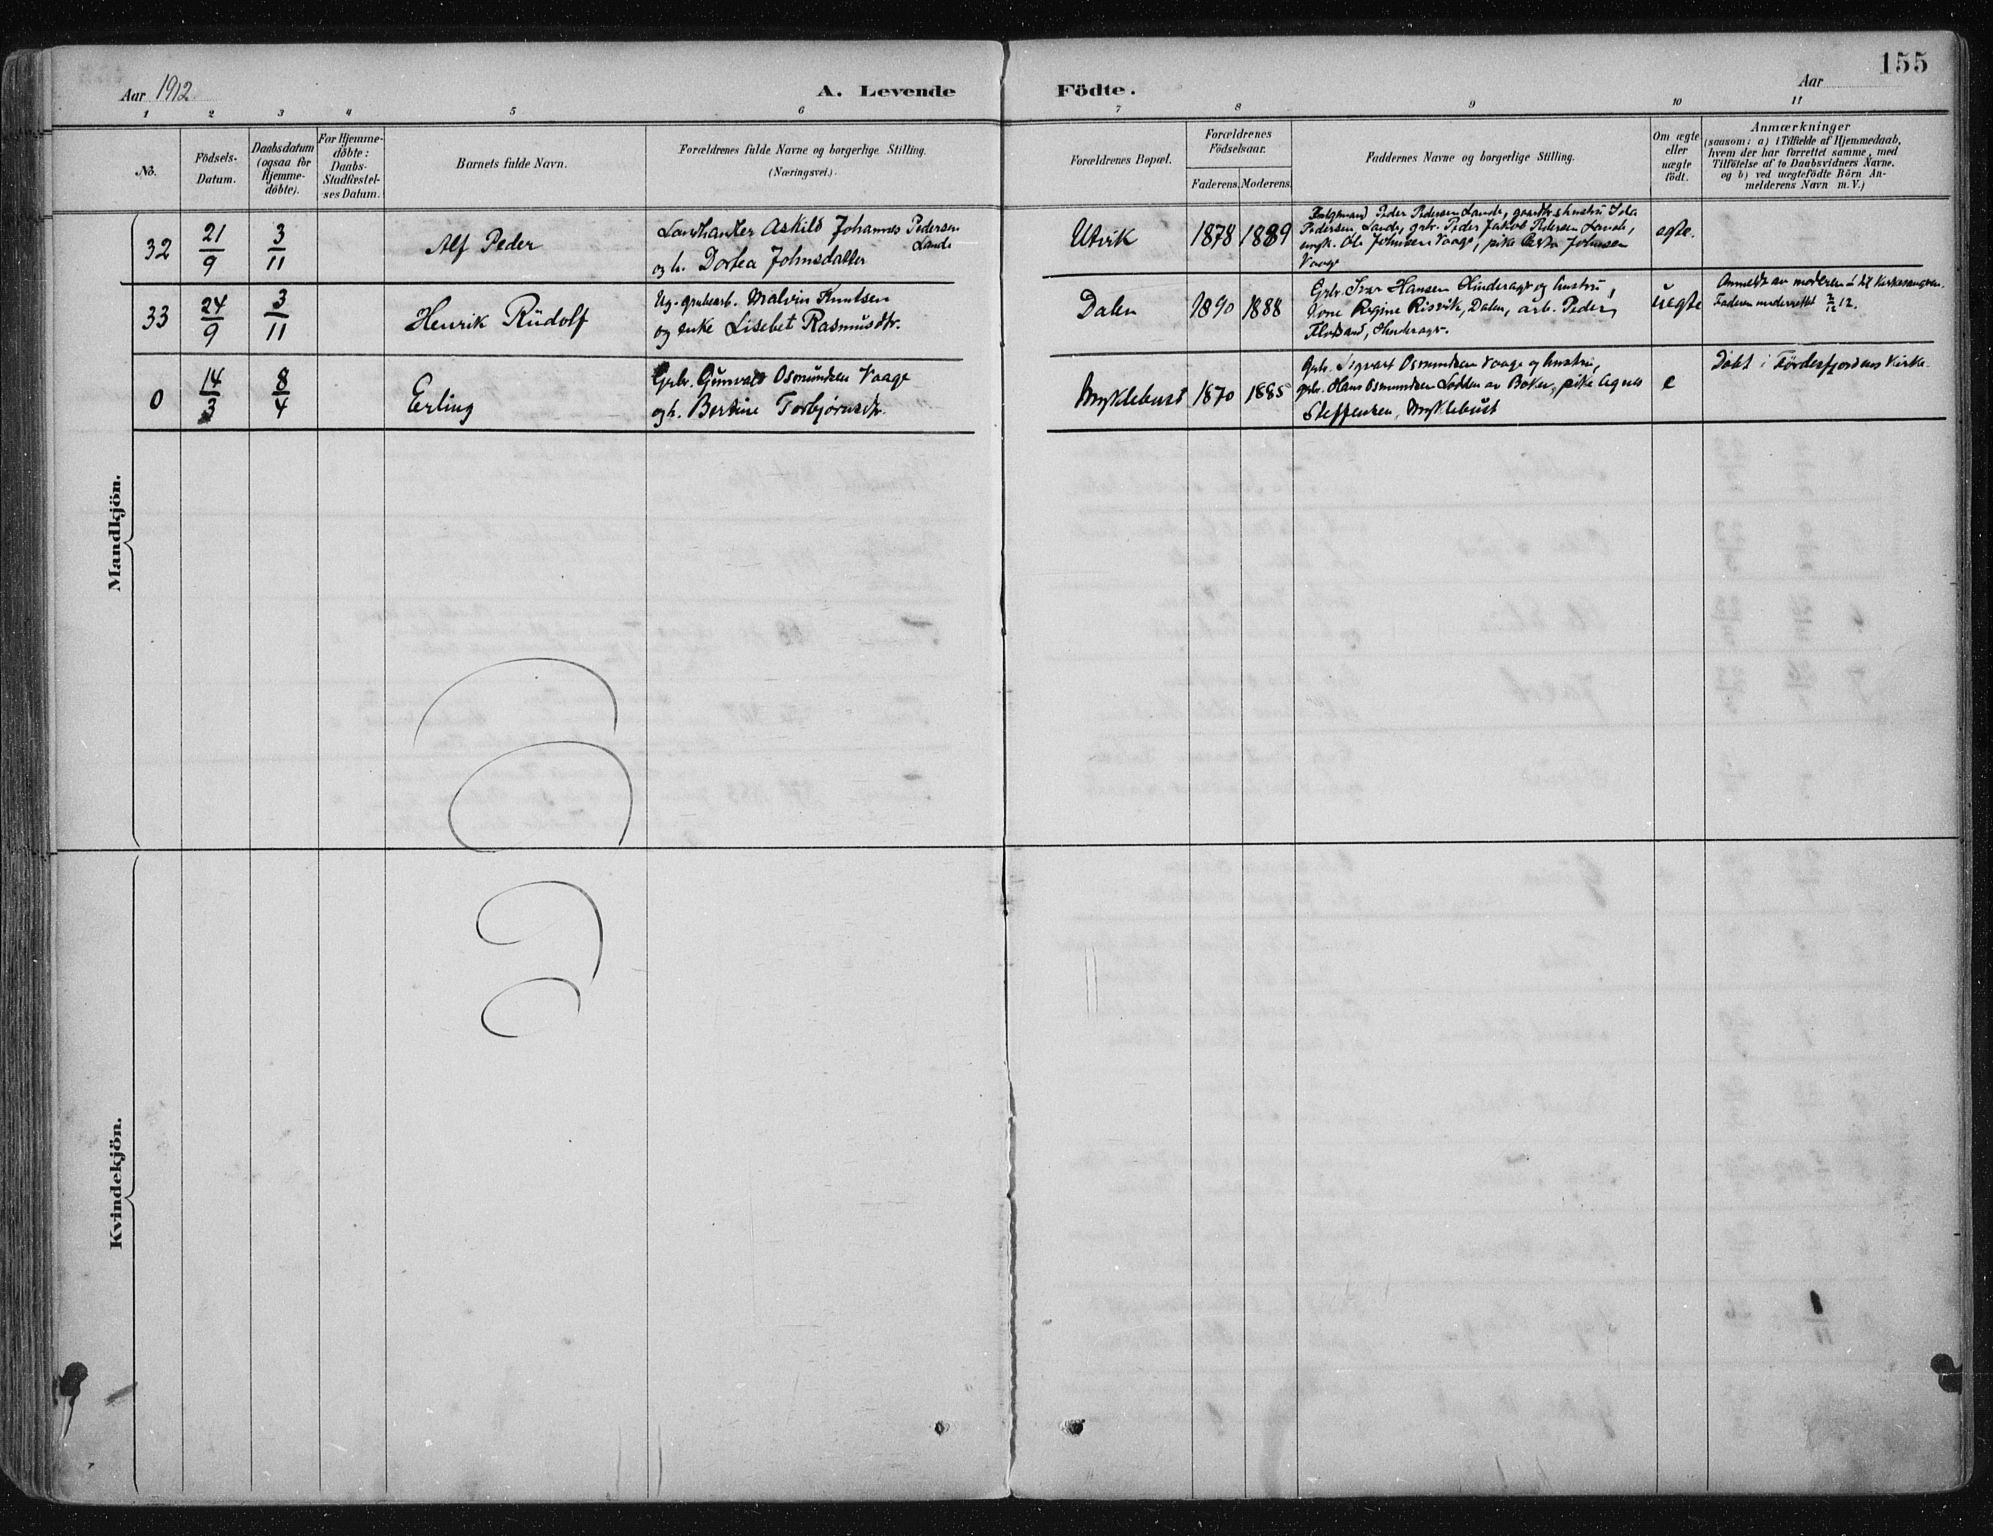 Aar 1912
A. Levende Födte.
155
Aar
1 2 3 4 5 6 7 8 9 10 11
No.
Födsels-Datum.
Daabsdatum (ogsaa for Hjemme-döbte).
For Hjemme-döbte: Daabs-Stadfæstel-ses Datum.
Barnets fulde Navn.
Forældrenes fulde Navne og borgerlige Stilling.
(Næringsvei.)
Forældrenes Bopæl.
Forældrenes Födselsaar.
Faderens. Moderens.
Faddernes Navne og borgerlige Stilling.
Om ægte eller uægte födt.
Anmærkninger
(saasom: a) i Tilfælde af Hjemmedaab,
hvem der har forrettet samme, med
Tilföielse af to Daabsvidners Navne.
og b) ved uægtefödte Börn An-
melderens Navn m. V.)
Mandkjön.
32 21/9 3/11 Alf Peder
Askild Johannes Pedersen Lande
og h. Dortea Johnsdatter
Utvik 1878 1889
Peder Pedersen Lande,
Pedersen Lande, grbr. Peder Jakob Pedersen Lande,
ungk. Ole Johnsen Vaage, pike Johnsen
Vaage
egte.
33 24/9 3/11 Henrik Rudolf
Ug. grubearb. Malvin Knutsen
og enke Lisebet Rasmusdtr.
Dalen 1890 1888
Grbr. Ivar Hansen Hinderager og hustru,
kone Regine Risvik, Dalen, arb. Peder
Flotsand, Hinderager.
uegte
Anmeldt av moderen til kirkesangeren.
Faderen underrettet 2/12 12.
0 14/3 8/4 Erling
Grbr. Gunvald Osmundsen Vaage
og h. Bertine Torbjørnsdtr.
Myklebust 1870 1885
Grbr. Sigvart Osmundsen Vaage og hustru,
grbr. Hans Osmundsen Lodden av Boken, pike Agnes
Steffensen, Myklebust
e
Døbt i Førdesfjordens Kirke.
Kvindekjön.